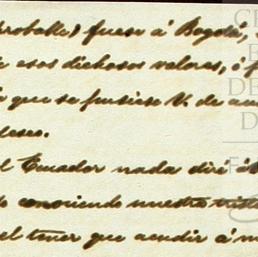 probable) fuese á Bogotá,
esos dichosos valores, ó
que se pusiese V. de acu
deseo.
el Ecuador nada diré á
conociendo nuestra triste
el tener que acudir á m